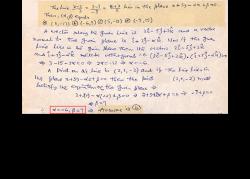 The line (x-2)/3 = (y-1)/-5 = (z+2)/2 lies in the plane x+3y-αz+β=0.
Then, (α,β) equals
(a) (6,-17) (b) (-6,7) (c) (5,-15) (d) (-5,15)
A vector along the given line is 3î-5ĵ+2k̂ and a vector
normal to the given plane is î+3ĵ-αk̂. Now if the given
line lies in the given plane then, the vectors 3î-5ĵ+2k̂
and î+3ĵ-αk̂ must be orthogonal i.e.
⇒ 3-15-2α=0 ⇒ 2α=-12 ⇒ α=-6.
A point on the line is (2,1,-2) and if the line lies in
the plane x+3y-αz+β=0 then the point (2,1,-2) must
satisfy the equation of the plane
2+3(1)-α(-2)+β=0
⇒ β=7
α=-6, β=7 ⇒ Answer is (b)